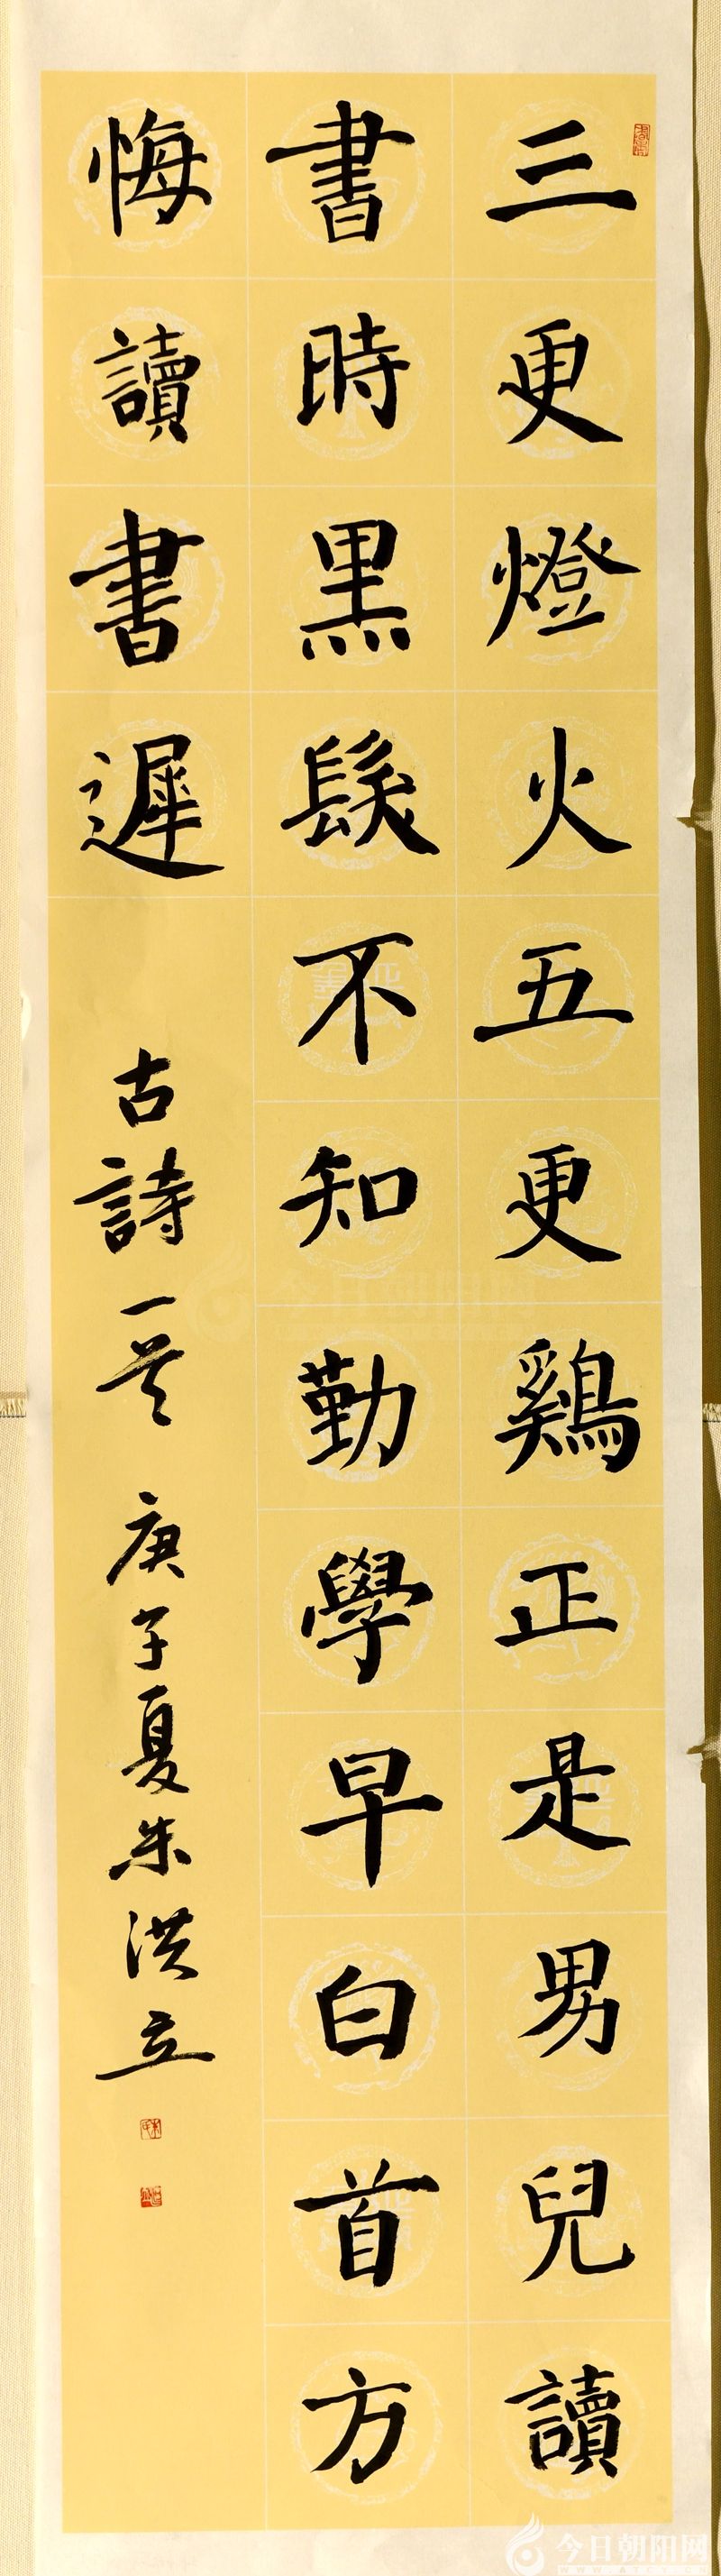 三更燈火五更鷄正是男兒讀
書時黑髮不知勤學早白首方
悔讀書遲
古詩一首 庚子夏朱洪立
今日朝阳网